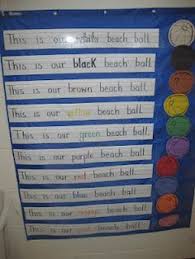 This is our white beach ball.
This is our black beach ball.
This is our brown beach ball.
This is our yellow beach ball.
This is our green beach ball.
This is our purple beach ball.
This is our red beach ball.
This is our blue beach ball.
This is our orange beach ball.
This is our beach ball.